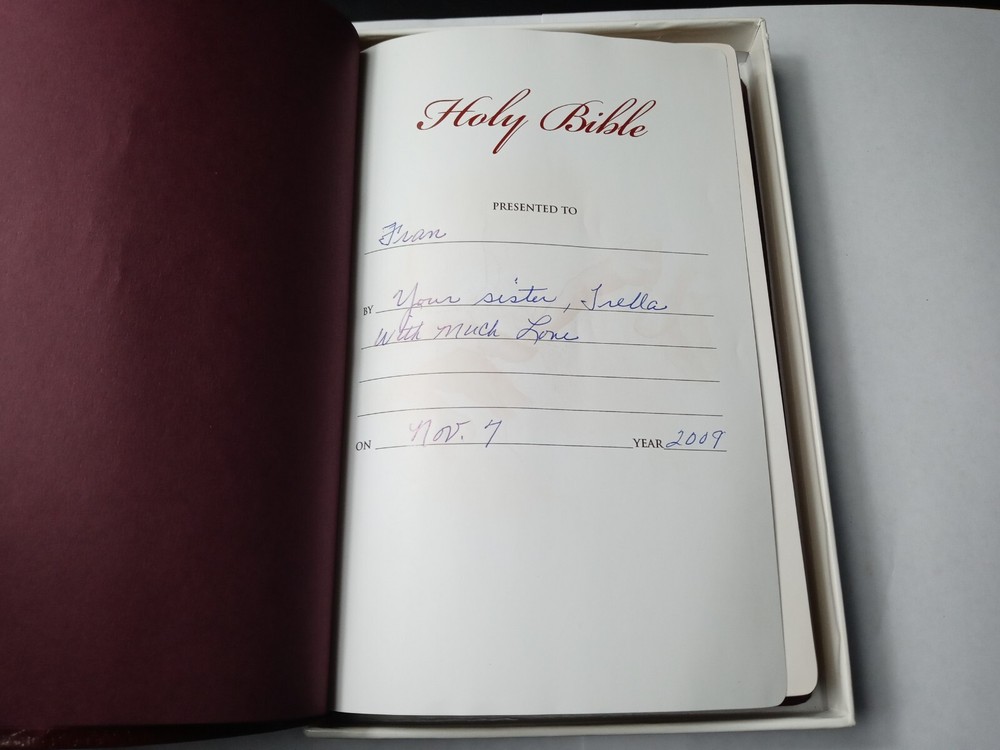 Holy Bible
PRESENTED TO
Fran
BY Your sister, Trella
with much Love
ON Nov. 7 YEAR 2009